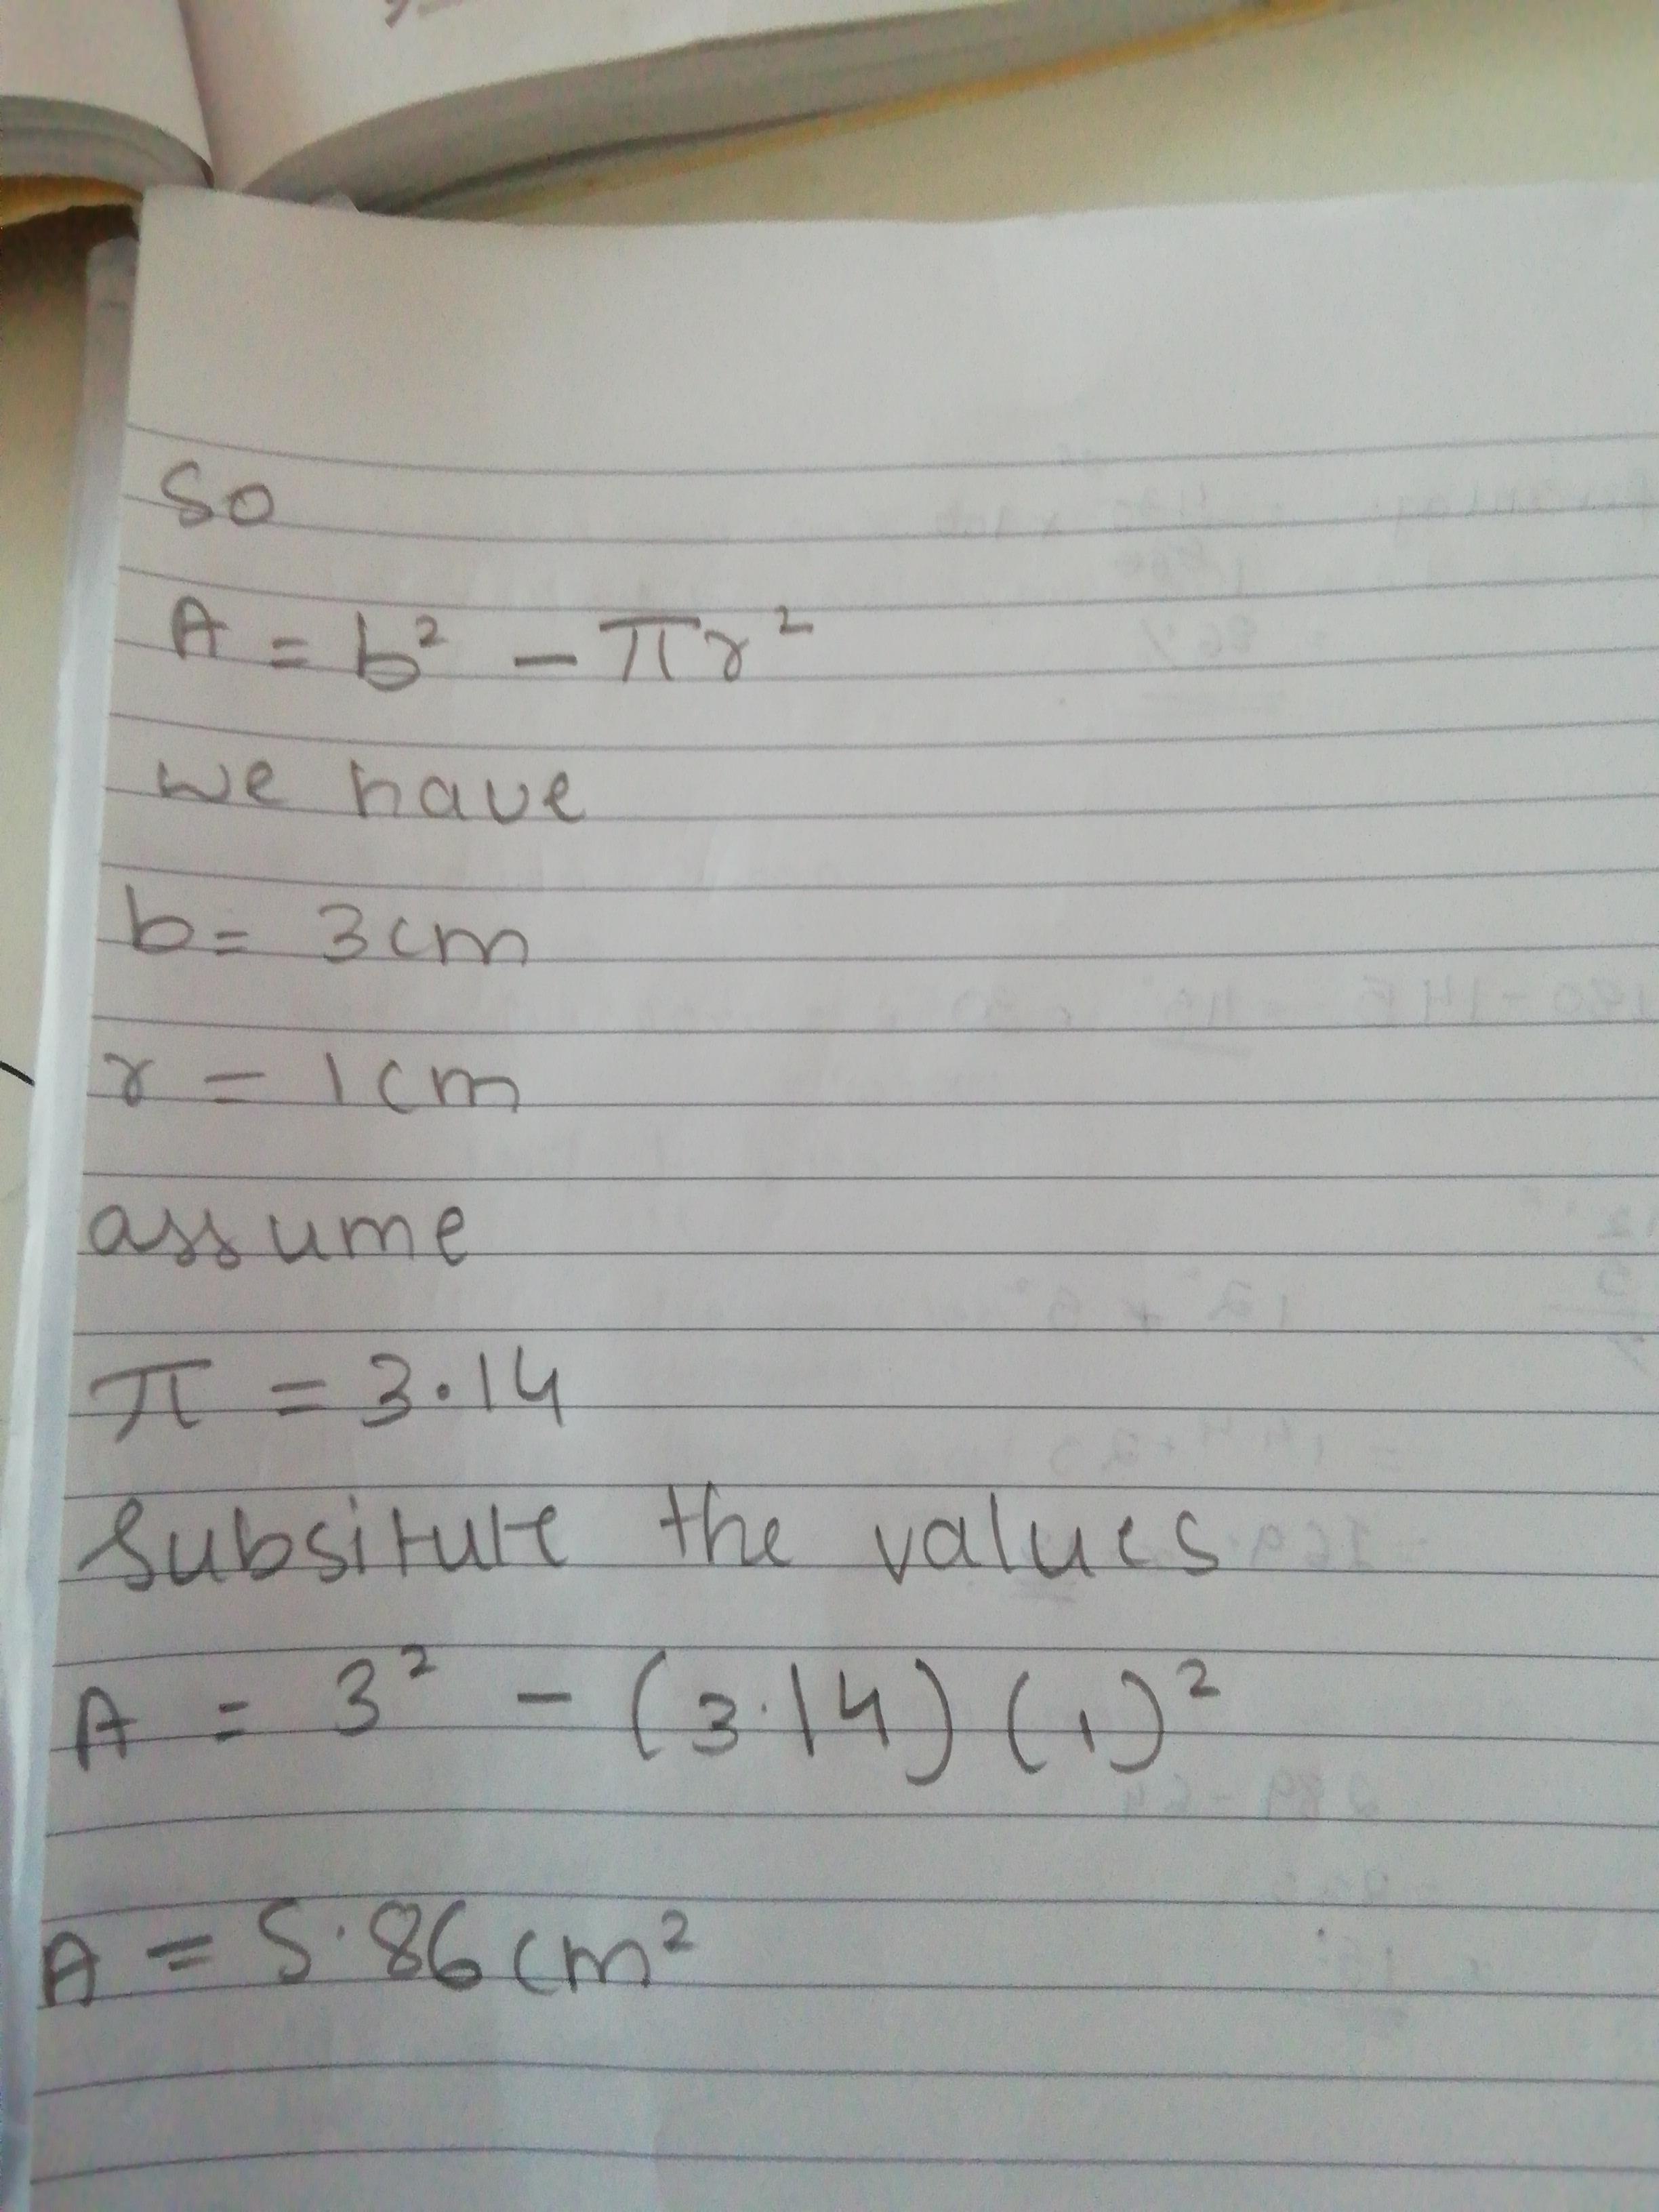 So
A = b² - πr²
we have
b = 3cm
r = 1cm
assume
π = 3.14
Subsitute the values
A = 3² - (3.14) (1)²
A = 5.86 cm²